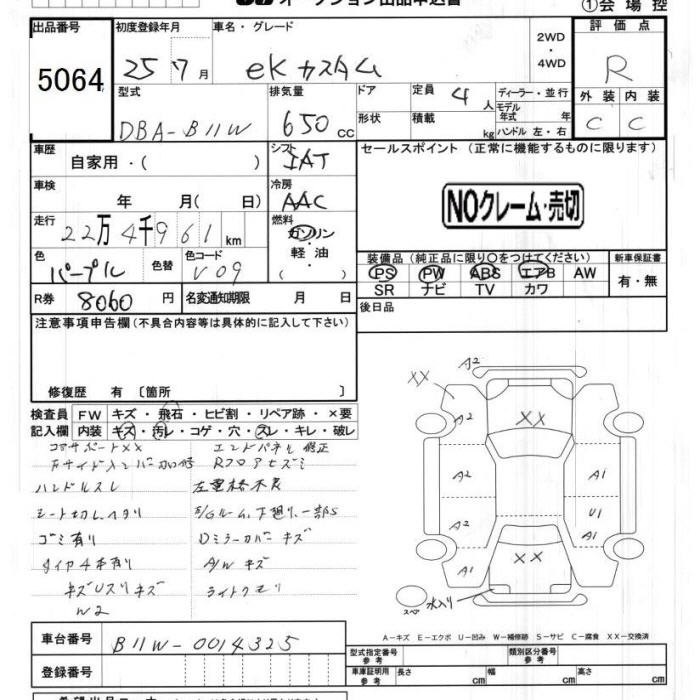 ①会場控
出品番号
5064
初度登録年月
25 7月
車名・グレード
eKカスタム
2WD
・
4WD
評価点
R
型式
DBA-B11W
排気量
650cc
ドア
形状
定員 4人
積載 kg
ディーラー・並行
モデル年式 年
ハンドル 左・右
外装 内装
C C
車歴
自家用・( )
シフト
IAT
セールスポイント(正常に機能するものに限ります)
車検
年 月( 日)
冷房
AAC
NOクレーム・売切
走行
22万4千961km
燃料
ガソリン
軽油
( )
色
パープル
色替
色コード
V09
装備品(純正品に限り○をつけてください)
PS PW ABS エアB AW
SR ナビ TV カワ
新車保証書
有・無
R券 8060円
名変通知期限 月 日
後日品
注意事項申告欄(不具合内容等は具体的に記入して下さい)
修復歴 有〔箇所 〕
検査員記入欄
FW キズ・飛石・ヒビ割・リペア跡・×要
内装 キズ・汚レ・コゲ・穴・スレ・キレ・破レ
コアサポートXX
エンドパネル修正
ハンドルスレ
シート切レヘタリ
ゴミ有り
Dミラーカバーキズ
タイヤ4本有り
A/Wキズ
キズUスリキズ
ライトクモリ
W2
A2
XX
A2
XX
A2
A1
A2
U1
A1
A1
XX
A2
スペア
水入り
A-キズ E-エクボ U-凹み W-補修跡 S-サビ C-腐食 XX-交換済
車台番号
B11W-0014325
登録番号
型式指定番号
参考
類別区分番号
参考
車庫証明用
参考
長さ cm
幅 cm
高さ cm